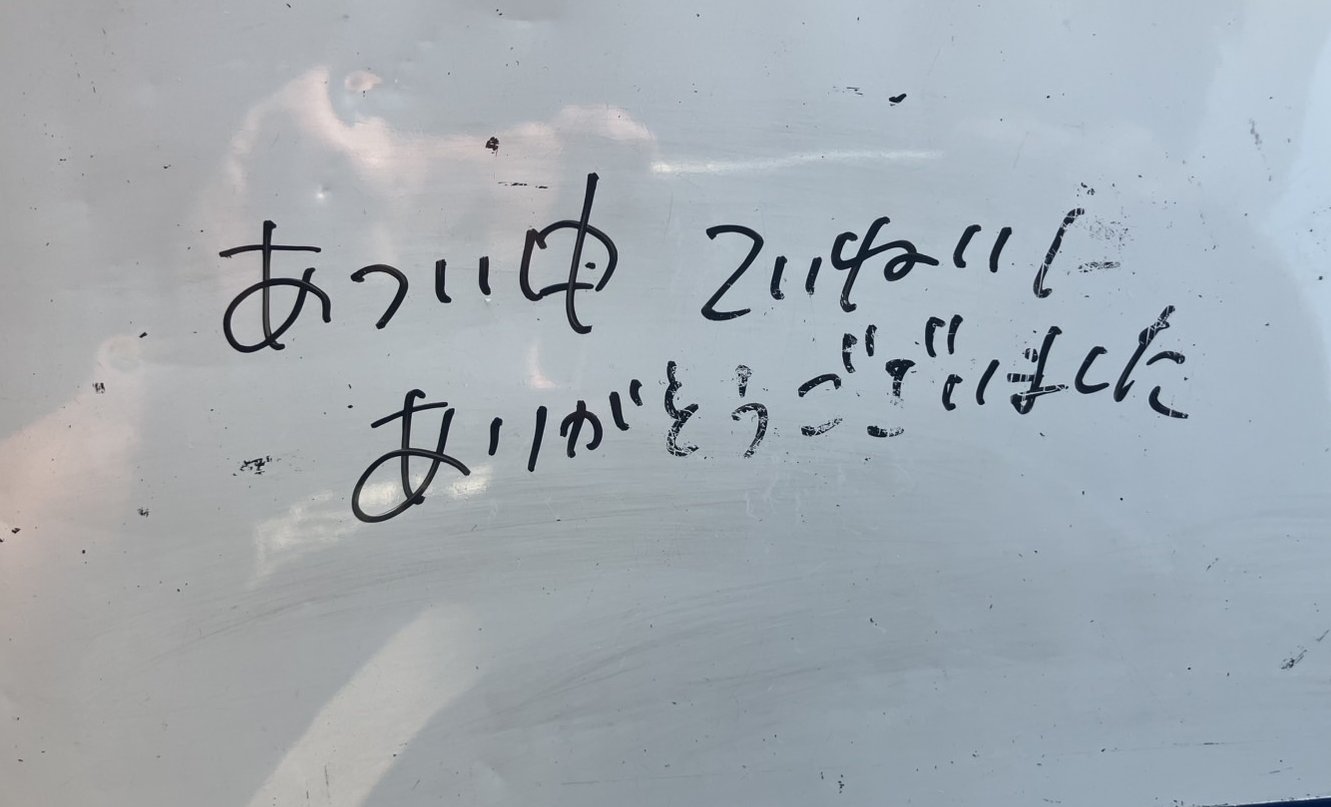 あつい中 ていねいに
ありがとうございました